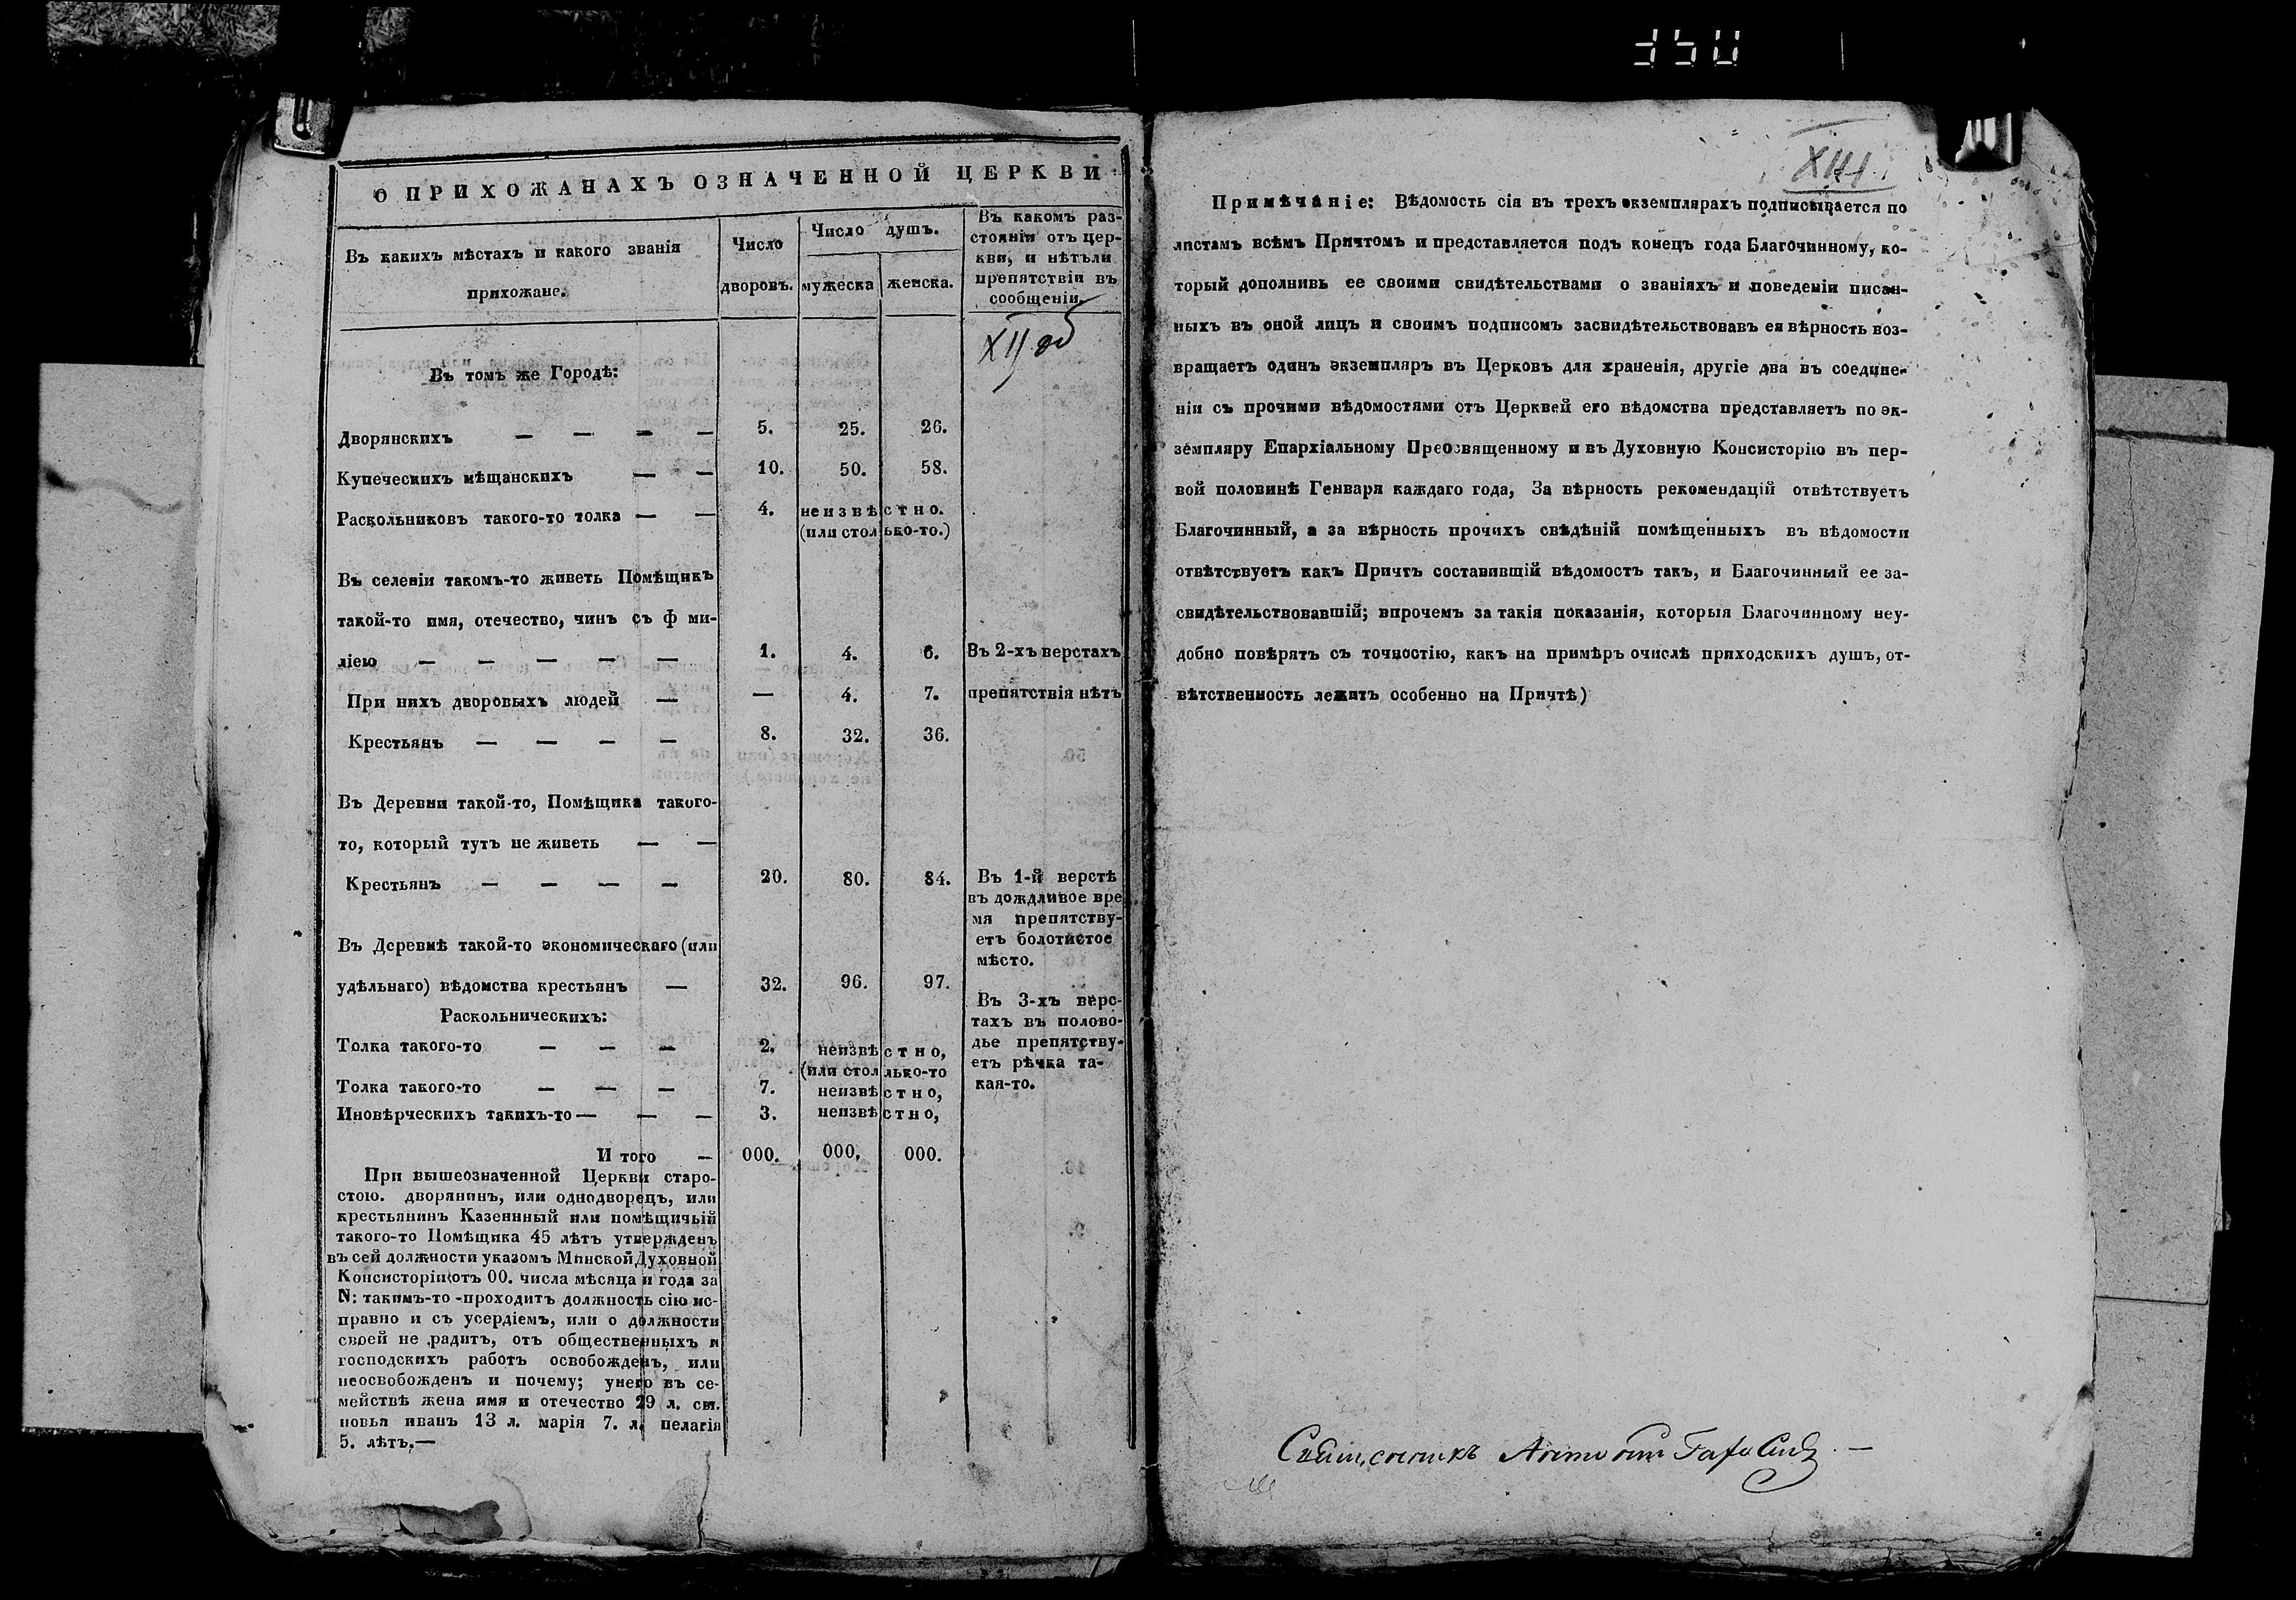 350
О ПРИХОЖАНАХЪ ОЗНАЧЕННОЙ ЦЕРКВИ
Въ какихъ мѣстахъ и какого званія
прихожане.
Число
дворовъ.
Число душъ.
мужеска
женска.
Въ какомъ раз-
стояніи отъ цер-
кви, и нѣтъли
препятствіи въ
сообщеніи.
XII об
Въ томъ же Городѣ:
Дворянскихъ — — — — 5. 25. 26.
Купеческихъ мѣщанскихъ — — 10. 50. 58.
Раскольниковъ такого-то толка — — 4. неизвѣстно.
(или столько-то.)
Въ селеніи такомъ-то живетъ Помѣщикъ
такой-то имя, отечество, чинъ съ ф ми-
ліею — — — — — 1. 4. 6. Въ 2-хъ верстахъ
При нихъ дворовыхъ людей — — 4. 7. препятствія нѣтъ
Крестьянъ — — — — 8. 32. 36.
Въ Деревни такой-то, Помѣщика такого-
то, который тутъ не живетъ — —
Крестьянъ — — — — 20. 80. 84. Въ 1-й верстѣ
въ дождливое вре
мя препятству-
етъ болотистое
мѣсто.
Въ Деревнѣ такой-то экономическаго (или
удѣльнаго) вѣдомства крестьянъ — 32. 96. 97.
Въ 3-хъ верс-
тахъ въ полово-
дье препятству-
етъ рѣчка та-
кая-то.
Раскольническихъ:
Толка такого-то — — — 2. неизвѣстно,
(или столлько-то
Толка такого-то — — — 7. неизвѣстно,
Иновѣрческихъ такихъ-то — — — 3. неизвѣстно,
И того — 000. 000. 000.
При вышеозначенной Церкви старо-
стою. дворянинъ, или однодворецъ, или
крестьянинъ Казеннный или помѣщичьій
такого-то Помѣщика 45 лѣтъ утвержденъ
въ сей должности указомъ Минской Духовной
Консисторіи отъ 00. числа мѣсяца и года за
N: такимъ-то -проходитъ должность сію ис-
правно и съ усердіемъ, или о должности
своей не радитъ, отъ общественныхъ и
господскихъ работъ освобожденъ, или
неосвобожденъ и почему; унего въ се-
мействѣ жена имя и отечество 29 л. сы.
новья иванъ 13 л. марія 7. л. пелагія
5. лѣтъ.—
XIII
Примѣчаніе: Вѣдомость сія въ трехъ экземплярахъ подписывается по
листамъ всѣмъ Причтомъ и представляется подъ конецъ года Благочинному, ко-
торый дополнивъ ее своими свидѣтельствами о званіяхъ и поведеніи писан-
ныхъ въ оной лицъ и своимъ подписомъ засвидѣтельствовавъ ея вѣрность воз-
вращаетъ одинъ экземпляръ въ Церковъ для храненія, другіе два въ соедине-
ніи съ прочими вѣдомостями отъ Церквей его вѣдомства представляетъ по эк-
земпляру Епархіальному Преосвященному и въ Духовную Консисторію въ пер-
вой половинѣ Генваря каждаго года, За вѣрность рекомендацій отвѣтствуетъ
Благочинный, а за вѣрность прочихъ свѣдѣній помѣщенныхъ въ вѣдомости
отвѣтствуетъ какъ Причтъ составившій вѣдомостъ такъ, и Благочинный ее за-
свидѣтельствовавшій; впрочемъ за такія показанія, которыя Благочинному неу-
добно повѣрять съ точностію, какъ на примѣръ очислѣ приходскихъ душъ, от-
вѣтственность лежитъ особенно на Причтѣ)
Священникъ